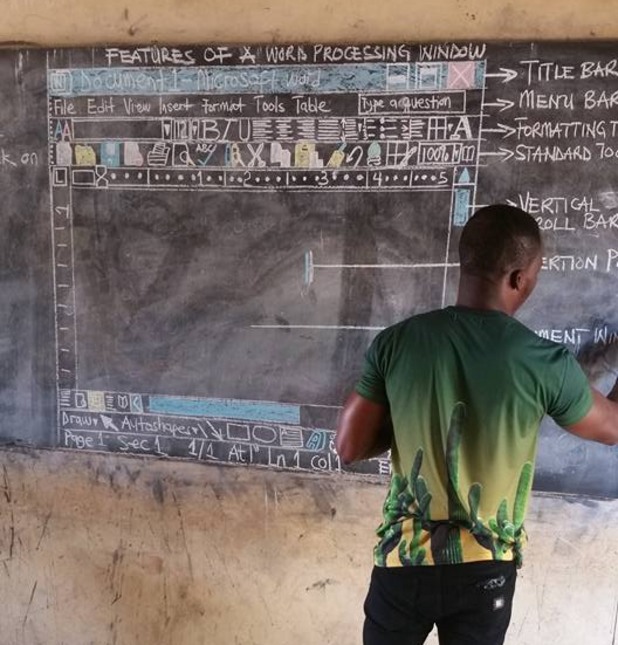 FEATURES OF A WORD PROCESSING WINDOW
Document 1 - Microsoft word
TITLE BAR
File Edit View Insert Format Tools Table Type a question
MENU BAR
12 B I U A
FORMATTING T
ck on
STANDARD TOO
100%
L 1 2 3 4 5
VERTICAL S
ROLL BAR
ERTION PO
MENT WIN
Draw Autoshapes
Page 1 Sec 1 1/1 At Ln 1 Col